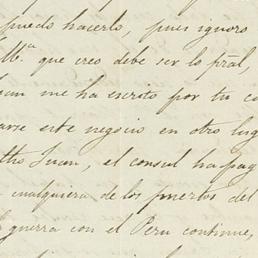 puedo hacerlo, pues ignoro
M.ª que creo debe ser lo pral,
me ha escrito por tu co
arse este negocio en otro lug
tho Juan, el consul ha pag
cualquiera de los puertos del
guerra con el Peru continue,